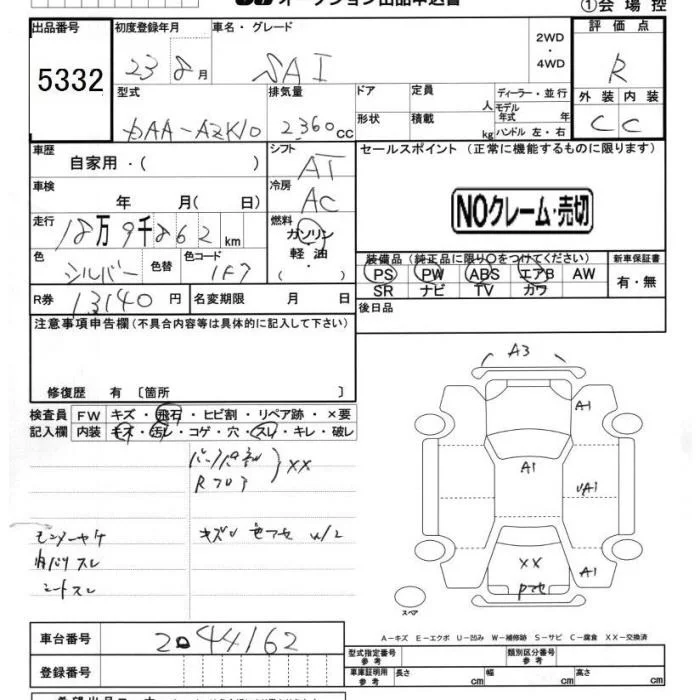 オークション出品申込書
①会場控
出品番号 初度登録年月 車名・グレード 2WD・4WD 評価点
5332 23 8月 SAI R
型式 排気量 ドア 定員 人 ディーラー・並行 外装 内装
DAA-AZK10 2360cc 形状 積載 kg モデル年式 年 ハンドル 左・右 C C
車歴 自家用・( ) シフト AT セールスポイント (正常に機能するものに限ります)
車検 年 月( 日) 冷房 AC
走行 18万9千862km 燃料 ガソリン 軽油 ・( )
NOクレーム・売切
色 シルバー 色替 色コード 1F7
装備品 (純正品に限り○をつけてください) 新車保証書
PS PW ABS エアB AW 有・無
SR ナビ TV カワ
R券 13140円 名変期限 月 日 後日品
注意事項申告欄(不具合内容等は具体的に記入して下さい)
修復歴 有 〔箇所 〕
検査員 FW キズ・飛石・ヒビ割・リペア跡・×要
記入欄 内装 キズ・汚レ・コゲ・穴・スレ・キレ・破レ
XX
Rフロア
モニターヤケ キズ 色アセ W/2
内バリスレ
シートスレ
A3
A1
A1
A1
XX
A1
スペア
A-キズ E-エクボ U-凹み W-補修跡 S-サビ C-腐食 XX-交換済
車台番号 2044162 型式指定番号 参考 類別区分番号 参考
登録番号 車庫証明用 参考 長さ cm 幅 cm 高さ cm